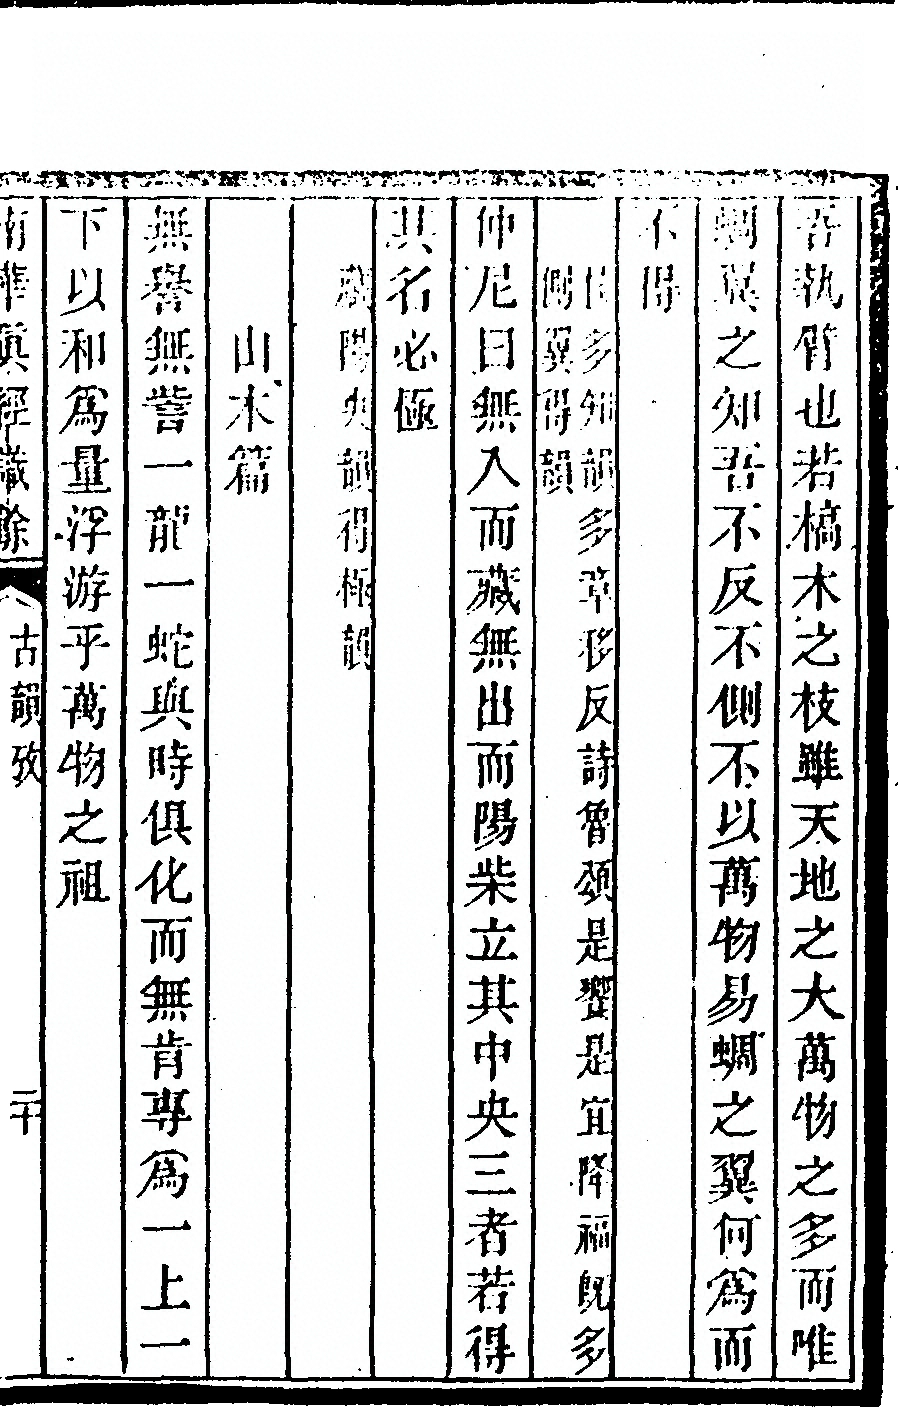 吾執臂也若槁木之枝雖天地之大萬物之多而唯
蜩翼之知吾不反不側不以萬物易蜩之翼何爲而
不得
多知韻多章移反詩魯頌是饗是宜降福既多
側翼得韻
仲尼曰無入而藏無出而陽柴立其中央三者若得
其名必極
藏陽央韻得極韻
山木篇
無譽無訾一龍一蛇與時俱化而無肯專爲一上一
下以和爲量浮游乎萬物之祖
南華真經識餘
古韻攷
二十